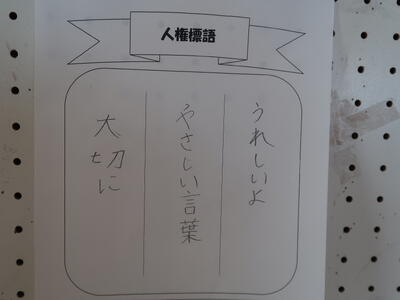 人権標語
うれしいよ
やさしい言葉
大切に